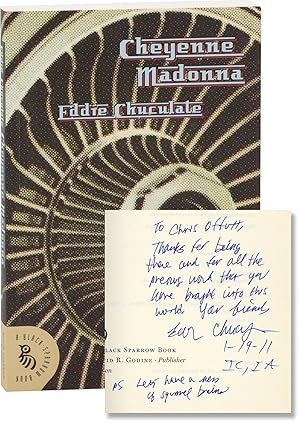 Cheyenne
Madonna
Eddie Chuculate
A BLACK SPARROW BOOK
To Chris Offutt,
Thanks for being
there and for all the
precious work that you
have brought into this
world Your friend,
1-19-11
IC, IA
LACK SPARROW BOOK
VID R. GODINE · Publisher
on
PS Let's have a mess
of squirrel brains